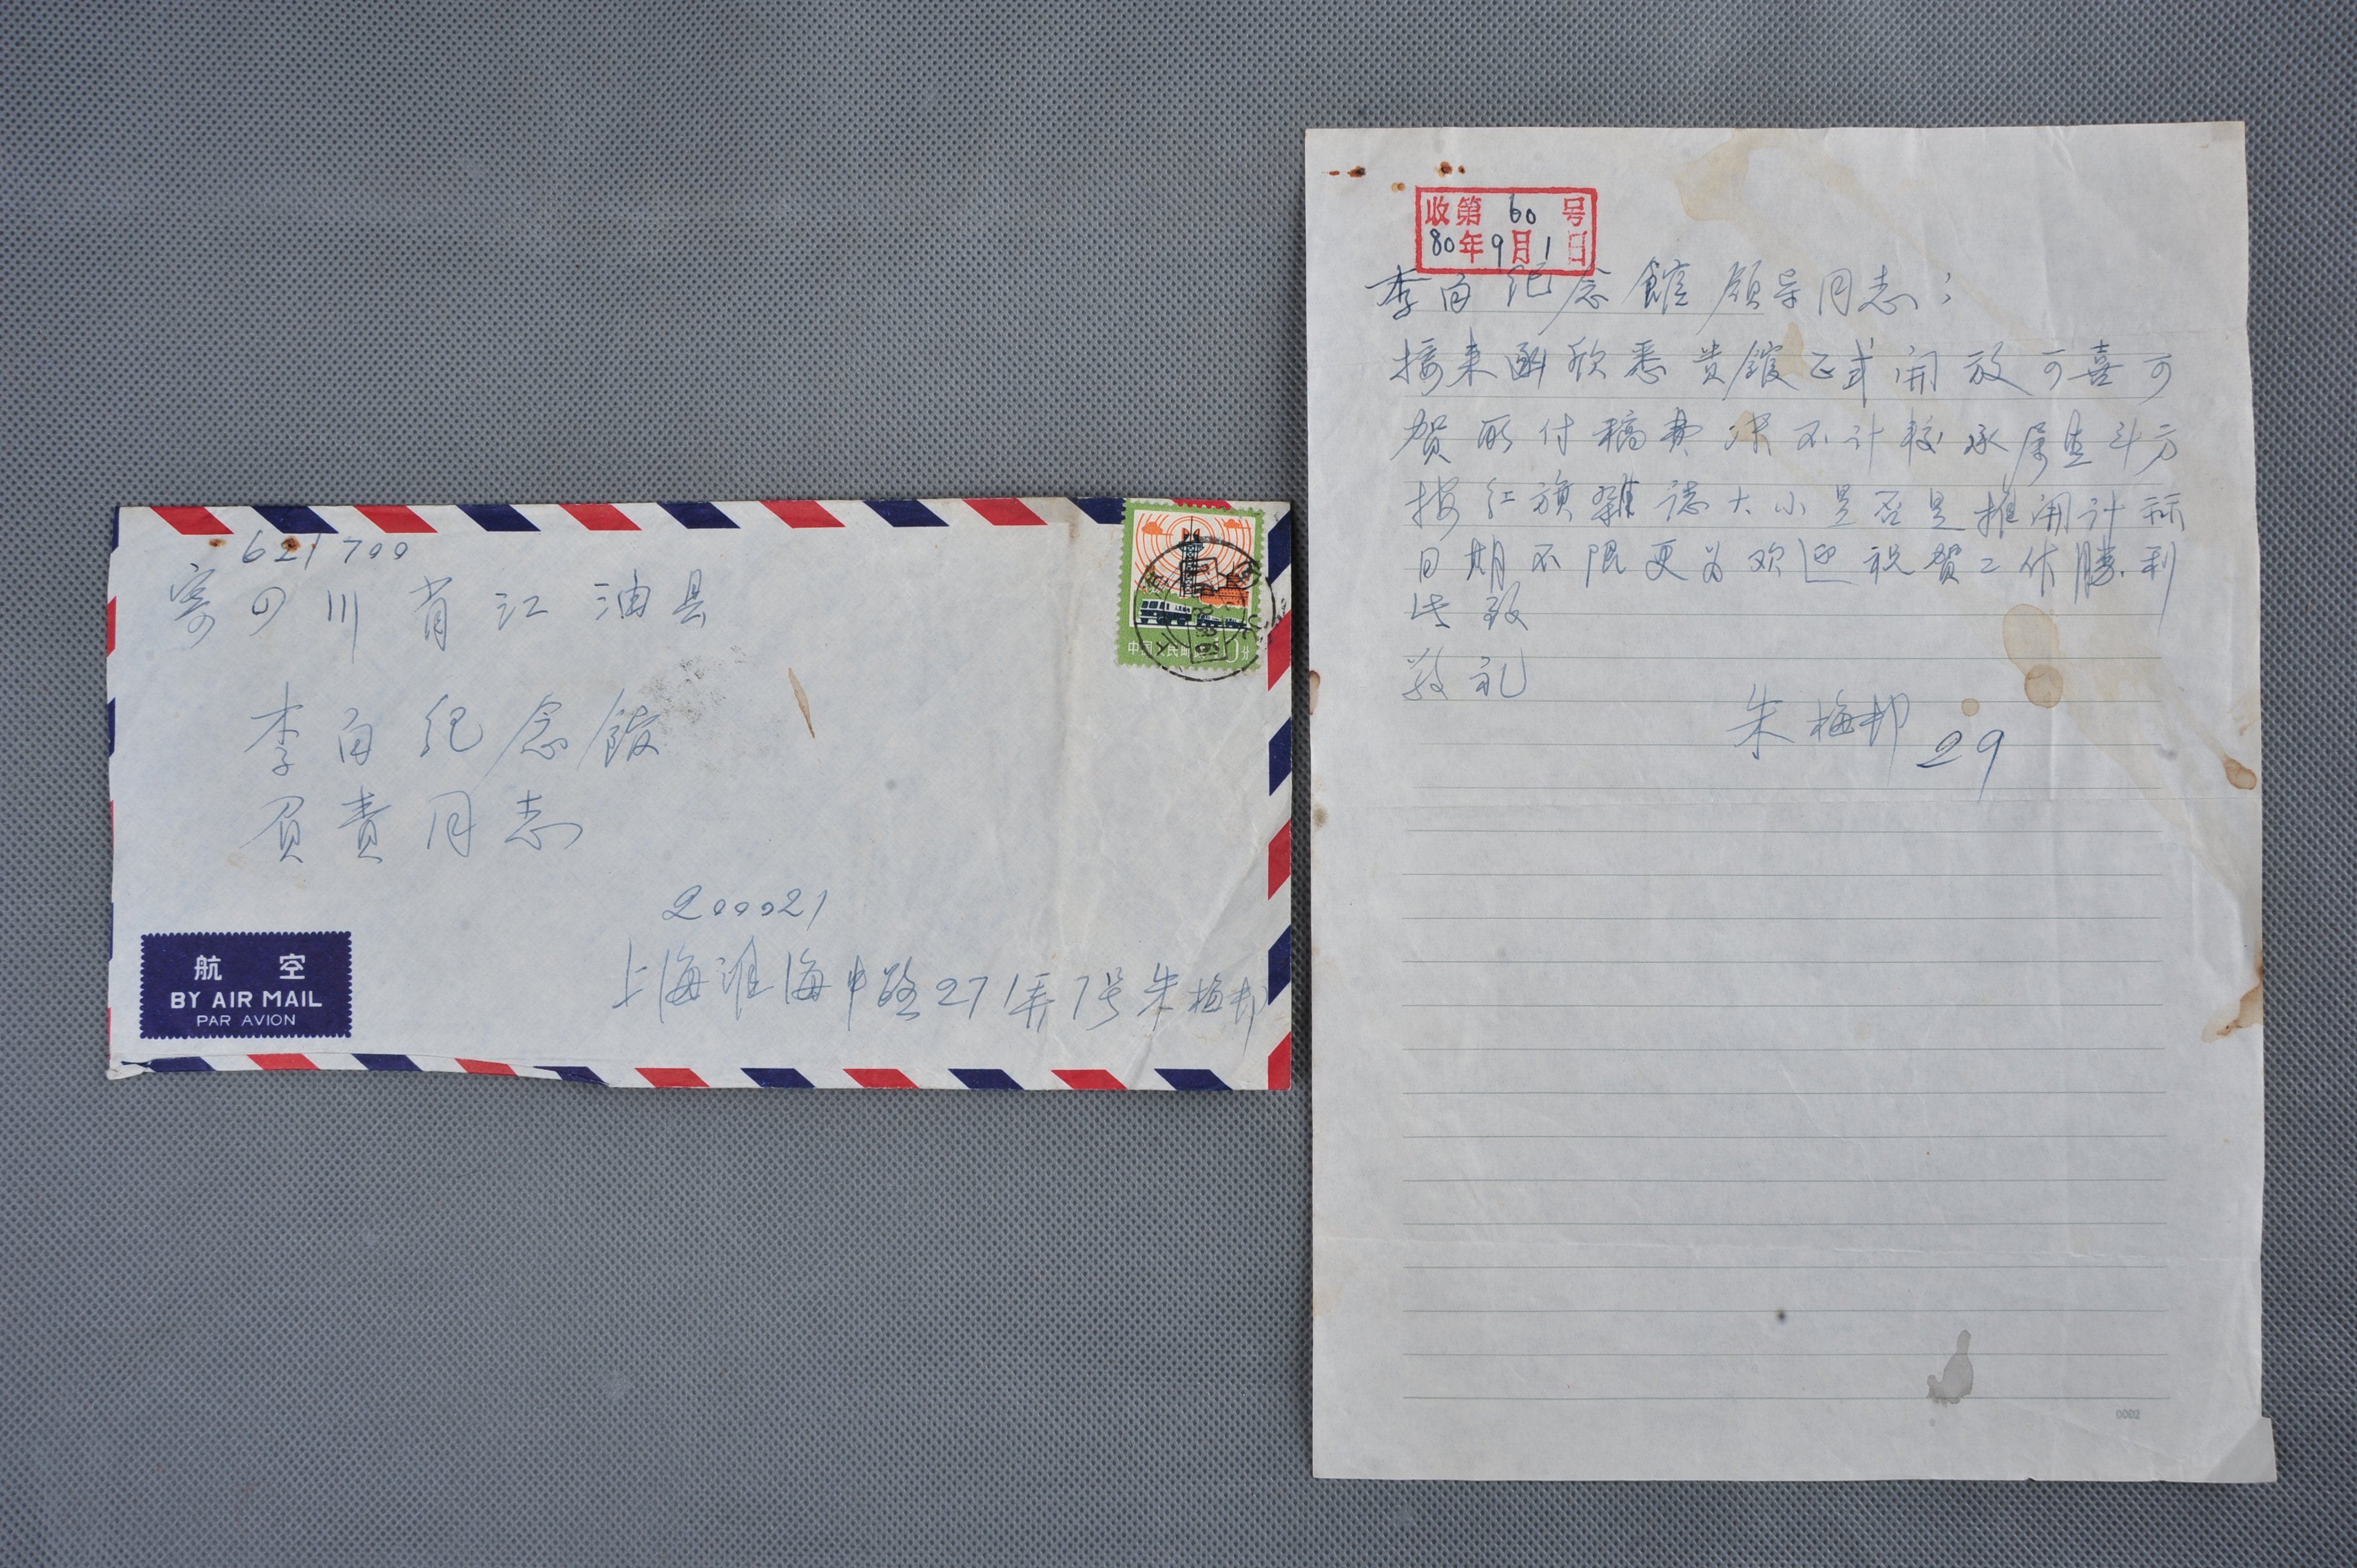 621700
寄四川省江油县
李白纪念馆
负责同志
200021
上海淮海中路271弄7号朱梅邨
航空
BY AIR MAIL
PAR AVION
中国人民邮政
收第60号
80年9月1日
李白纪念馆领导同志:
接来函欣悉贵馆正式开放可喜可
贺所付稿费决不计较承属画斗方
按红旗雜誌大小是否是推测计标
日期不限更为欢迎祝贺工作勝利
此致
敬礼
朱梅邨
29
0002